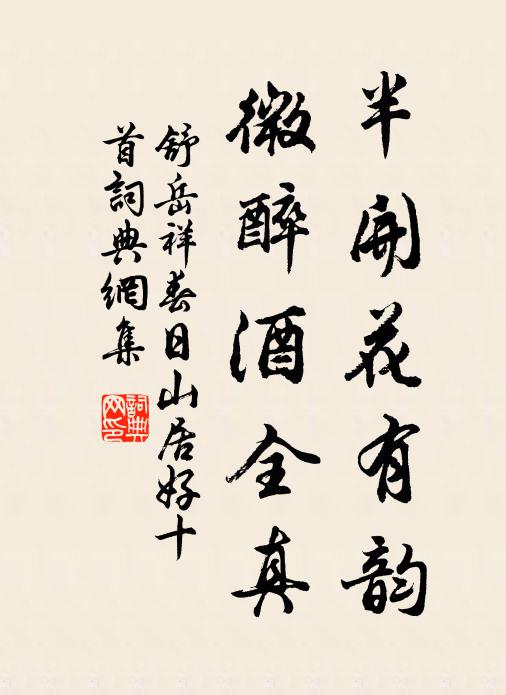 半開花有韵
微醉酒全真
舒岳祥春日山居好十
首詞典網集
詞典
网印